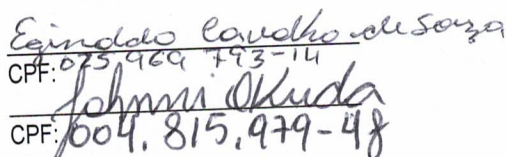 Eginaldo Carvalho de Souza
CPF: 025 969 793-14
Johnni Okuda
CPF: 004.815.979-48